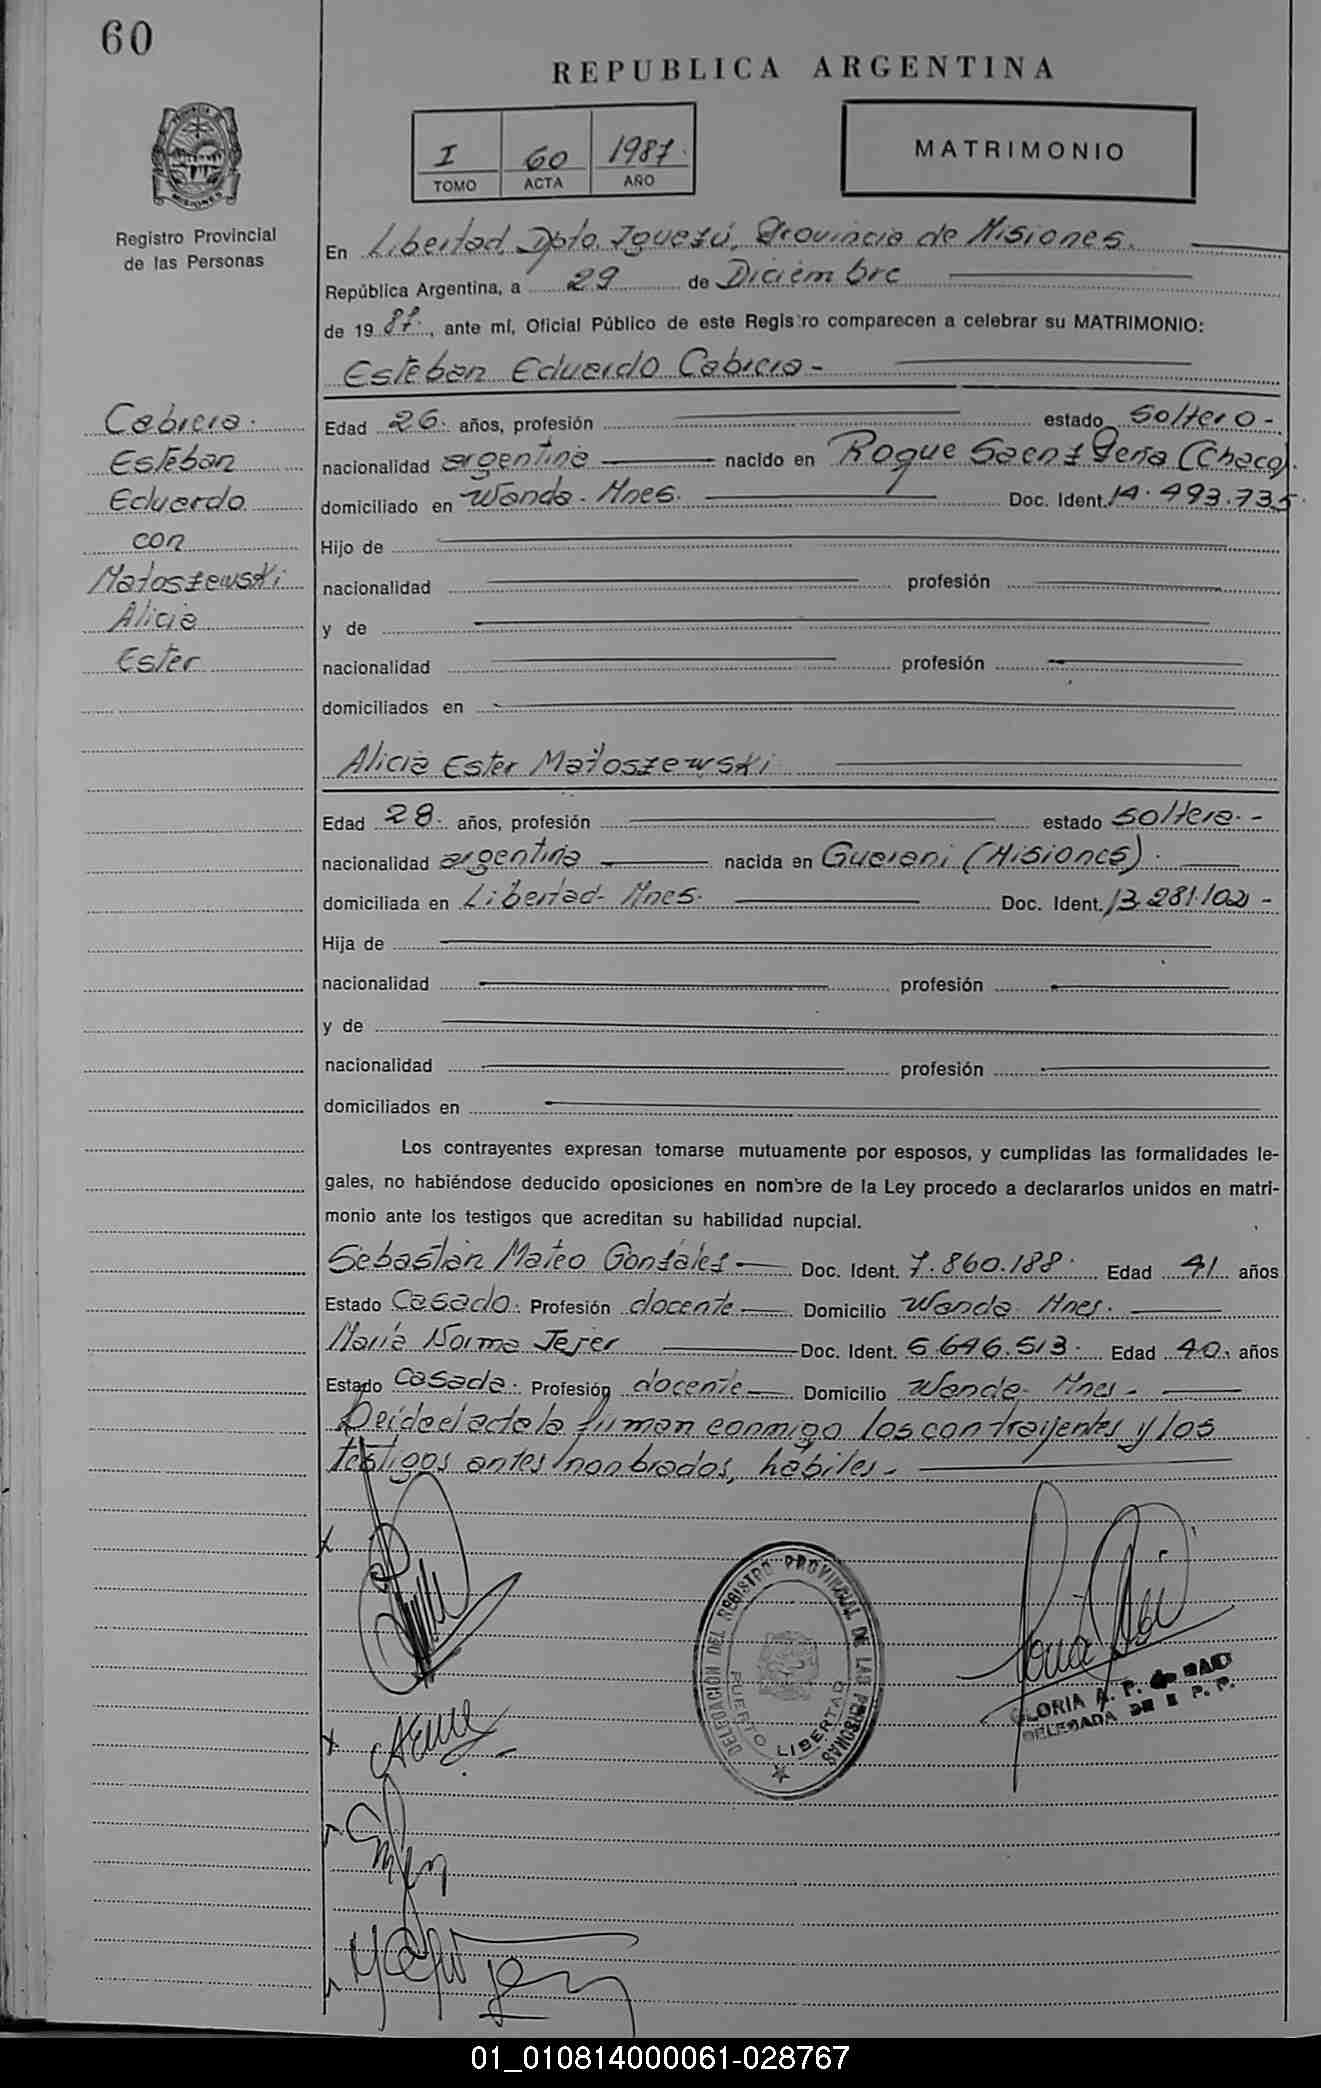 60
REPUBLICA ARGENTINA
I 60 1987.
TOMO ACTA AÑO
MATRIMONIO
Registro Provincial
de las Personas
En Libertad, Dpto. Iguazú, Provincia de Misiones.
República Argentina, a 29 de Diciembre
de 19 87., ante mí, Oficial Público de este Registro comparecen a celebrar su MATRIMONIO:
Esteban Eduardo Cabrera -
Cabrera.
Esteban
Eduardo
con
Matoszewski
Alicia
Ester
Edad 26. años, profesión estado soltero -
nacionalidad argentina nacido en Roque Saenz Peña (Chaco).
domiciliado en Wanda - Mnes. Doc. Ident. 14.493.735.
Hijo de
nacionalidad profesión
y de
nacionalidad profesión
domiciliados en
Alicia Ester Matoszewski
Edad 28. años, profesión estado soltera. -
nacionalidad argentina nacida en Guarani (Misiones).
domiciliada en Libertad - Mnes. Doc. Ident. 13.281.102 -
Hija de
nacionalidad profesión
y de
nacionalidad profesión
domiciliados en
Los contrayentes expresan tomarse mutuamente por esposos, y cumplidas las formalidades le-
gales, no habiéndose deducido oposiciones en nombre de la Ley procedo a declararlos unidos en matri-
monio ante los testigos que acreditan su habilidad nupcial.
Sebastián Mateo Gonsález Doc. Ident. 7.860.188. Edad 41 años
Estado Casado. Profesión docente Domicilio Wanda - Mnes.
María Norma Jejer Doc. Ident. 5.646.513. Edad 40. años
Estado Casada. Profesión docente Domicilio Wanda - Mnes -
Leída el acta la firman conmigo los contrayentes y los
testigos antes nonbrados, habiles -
DELEGACIÓN DEL REGISTRO PROVINCIAL DE LAS PERSONAS
PUERTO LIBERTAD
GLORIA A. P. de
DELEGADA DE R. P. P.
01_010814000061-028767